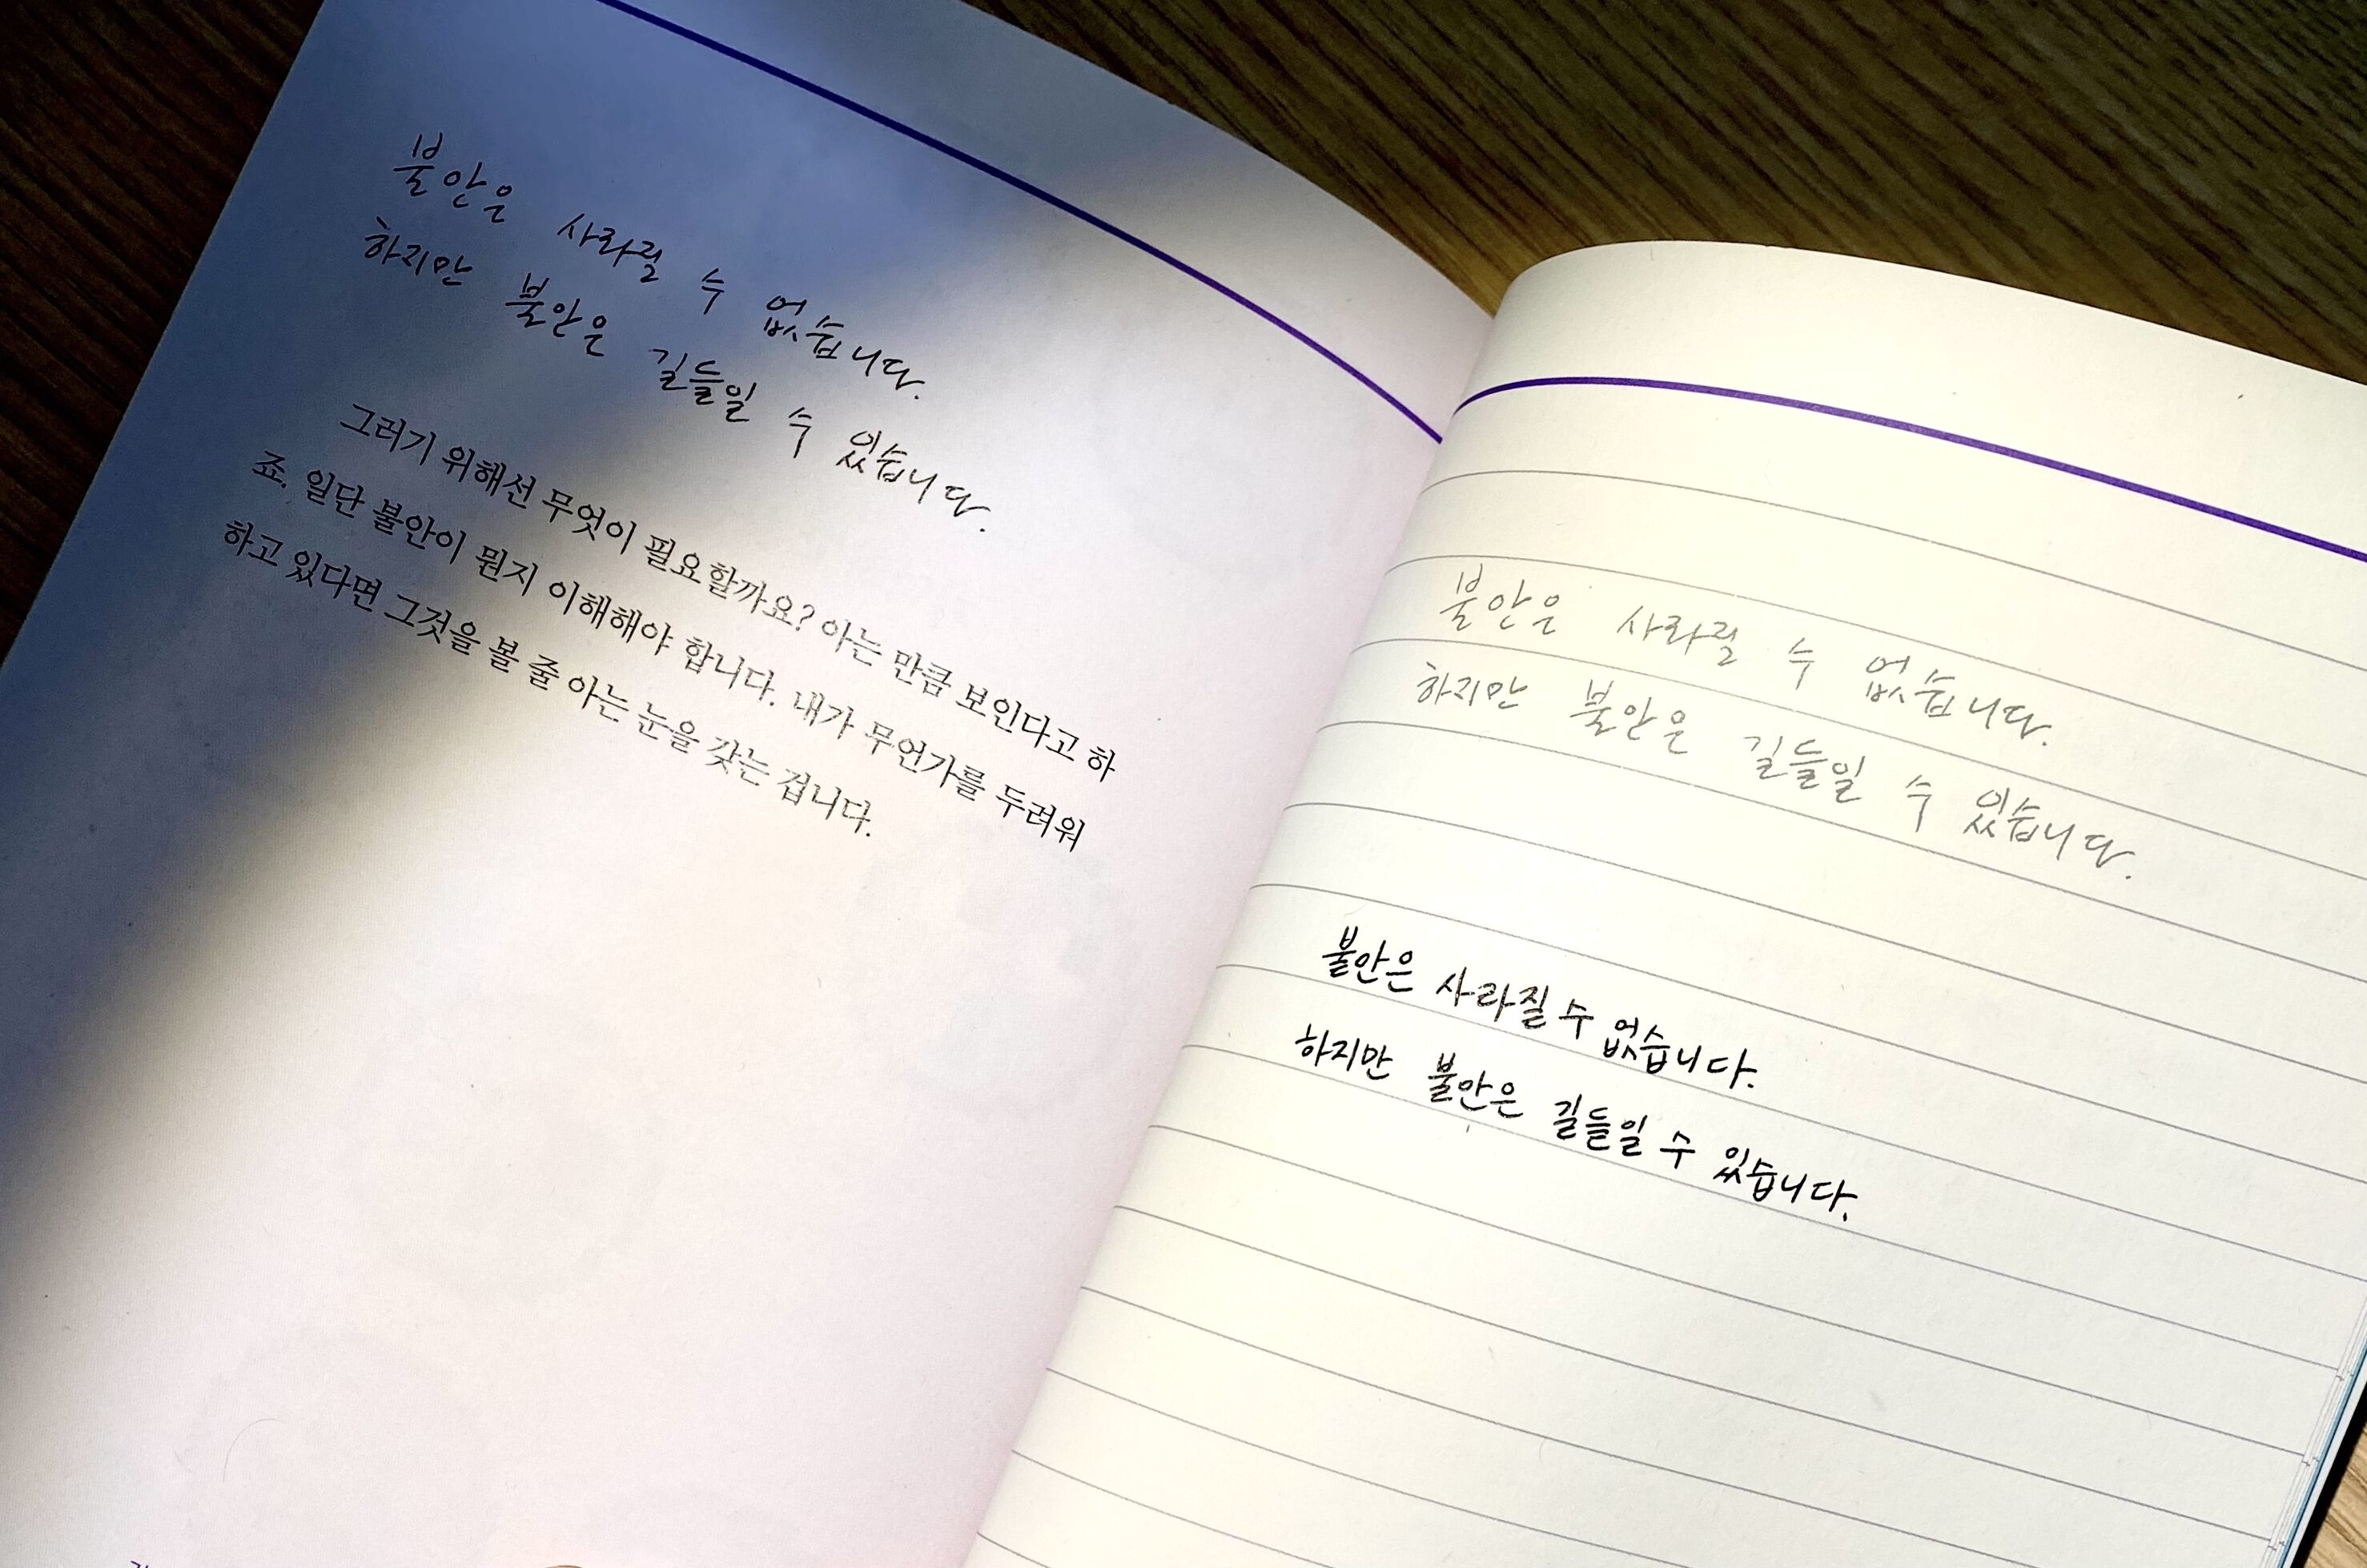 불안은 사라질 수 없습니다.
하지만 불안은 길들일 수 있습니다.
그러기 위해선 무엇이 필요할까요? 아는 만큼 보인다고 하
죠. 일단 불안이 뭔지 이해해야 합니다. 내가 무언가를 두려워
하고 있다면 그것을 볼 줄 아는 눈을 갖는 겁니다.
불안은 사라질 수 없습니다.
하지만 불안은 길들일 수 있습니다.
불안은 사라질 수 없습니다.
하지만 불안은 길들일 수 있습니다.